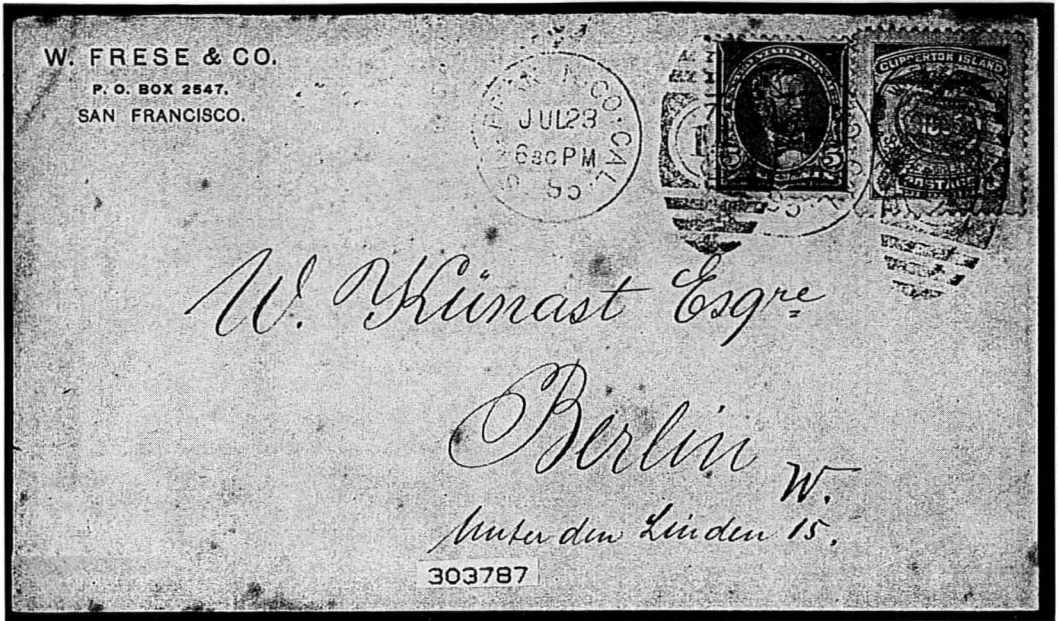 W. FRESE & CO.
P. O. BOX 2547.
SAN FRANCISCO.
CO. CAL.
JUL 23
630 PM
95
5 5
CLIPPERTON ISLAND
1895
POSTAGE
W. Künast Esqre
Berlin W.
Unter den Linden 15.
303787